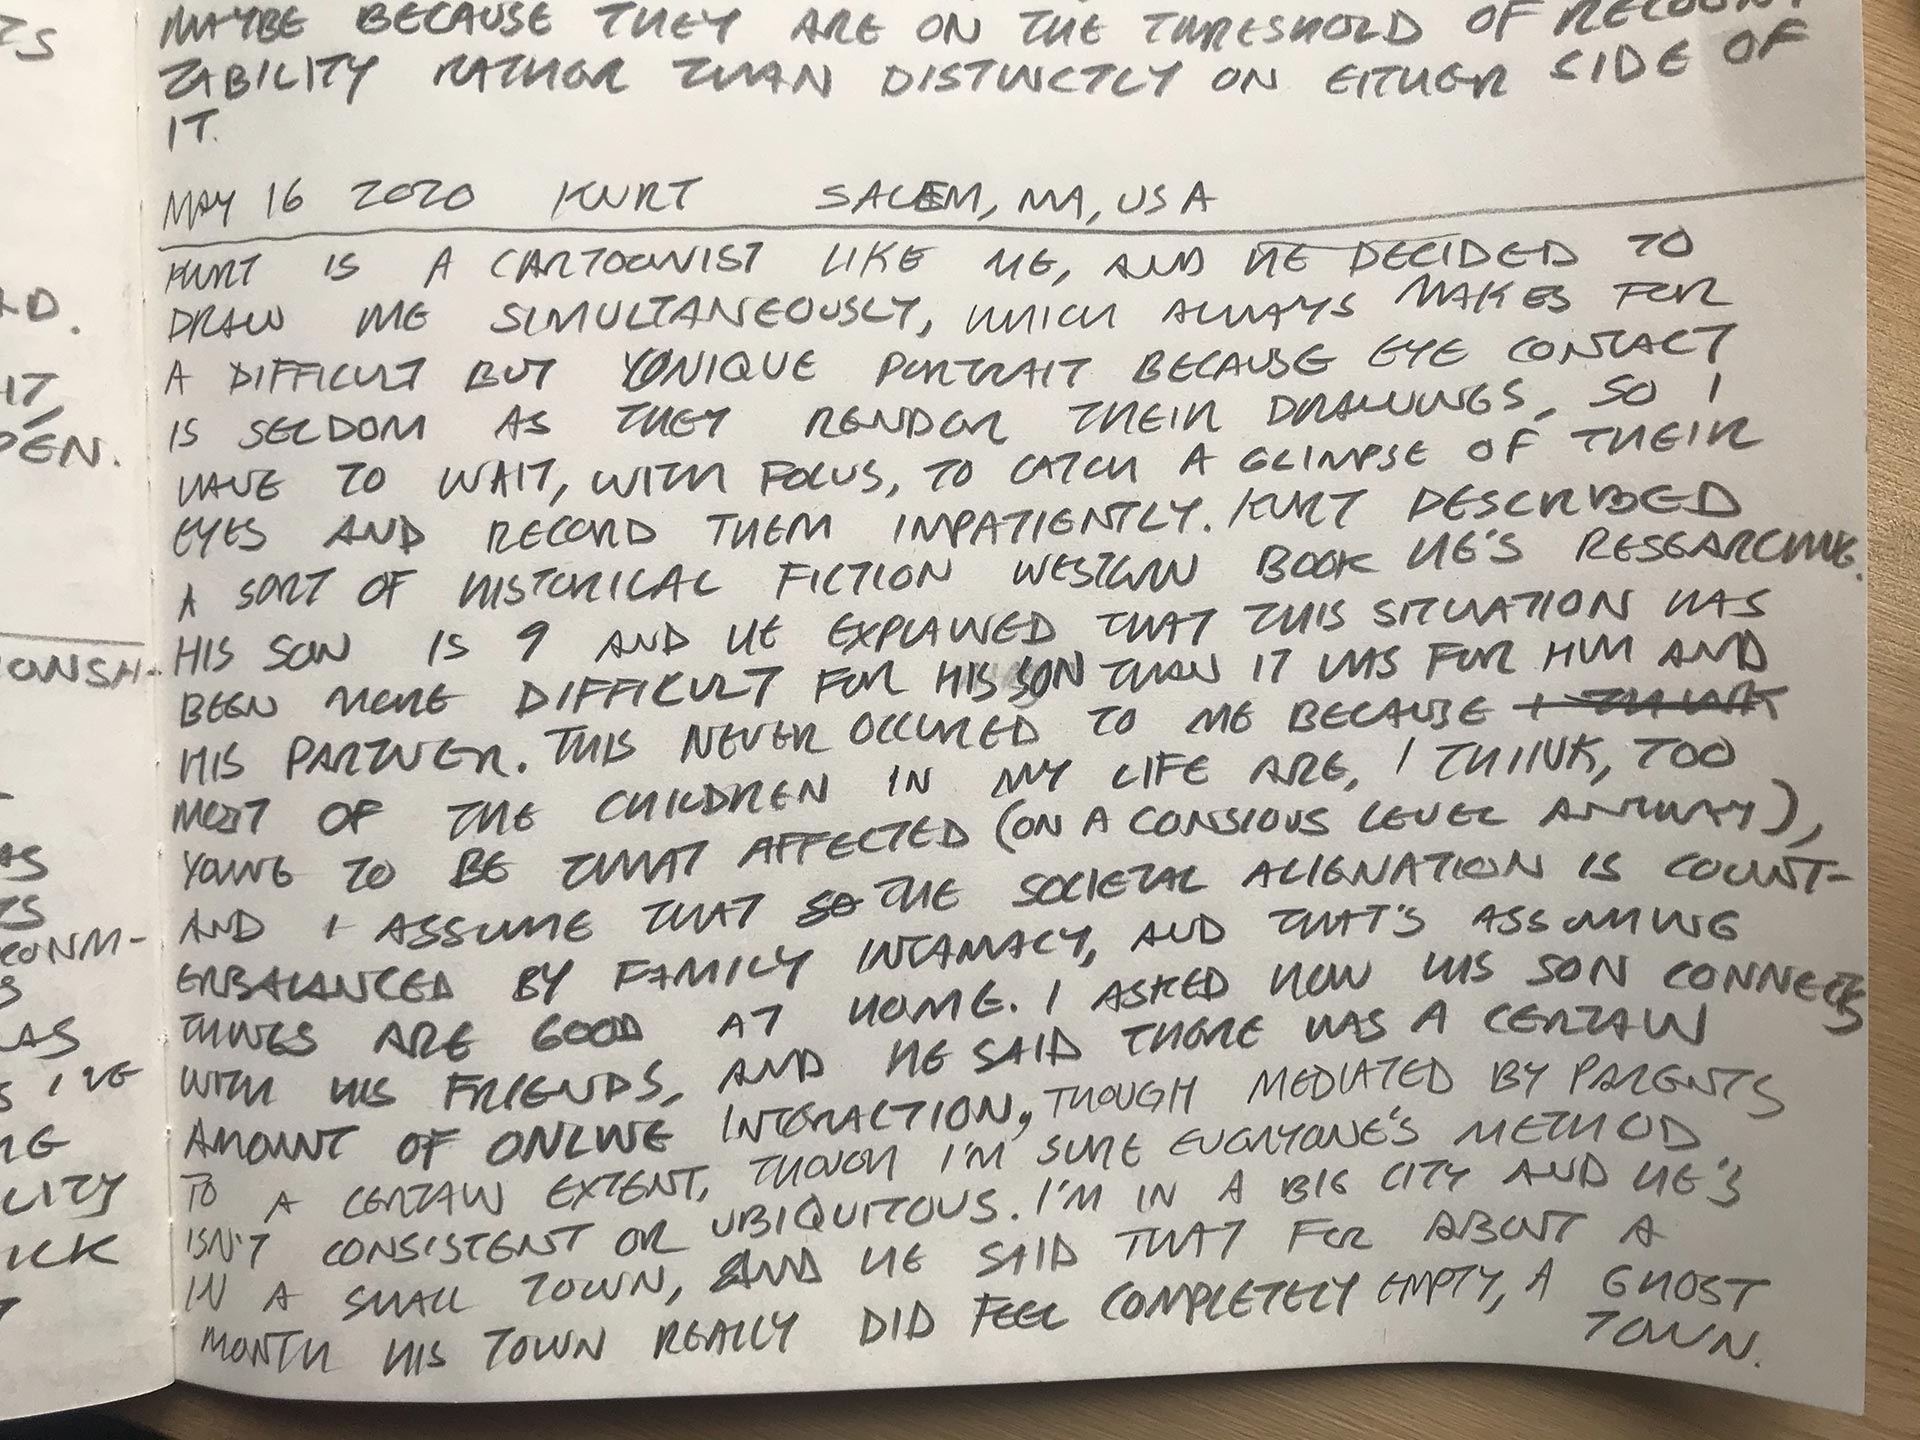 MAYBE BECAUSE THEY ARE ON THE THRESHOLD OF RECOUNT
TABILITY RATHER THAN DISTINCTLY ON EITHER SIDE OF
IT.
MAY 16 2020 KURT SALEM, MA, USA
KURT IS A CARTOONIST LIKE ME, AND HE DECIDED TO
DRAW ME SIMULTANEOUSLY, WHICH ALWAYS MAKES FOR
A DIFFICULT BUT UNIQUE PORTRAIT BECAUSE EYE CONTACT
IS SELDOM AS THEY RENDER THEIR DRAWINGS, SO I
HAVE TO WAIT, WITH FOCUS, TO CATCH A GLIMPSE OF THEIR
EYES AND RECORD THEM IMPATIENTLY. KURT DESCRIBED
A SORT OF HISTORICAL FICTION WESTERN BOOK HE'S RESEARCHING.
HIS SON IS 9 AND HE EXPLAINED THAT THIS SITUATION HAS
BEEN MORE DIFFICULT FOR HIS SON THAN IT WAS FOR HIM AND
HIS PARTNER. THIS NEVER OCCURED TO ME BECAUSE I THINK
MOST OF THE CHILDREN IN MY LIFE ARE, I THINK, TOO
YOUNG TO BE THAT AFFECTED (ON A CONSIOUS LEVEL ANYWAY),
AND I ASSUME THAT SO THE SOCIETAL ALIENATION IS COUNT-
ERBALANCED BY FAMILY INTAMACY, AND THAT'S ASSUMING
THINGS ARE GOOD AT HOME. I ASKED HOW HIS SON CONNECTS
WITH HIS FRIENDS, AND HE SAID THERE WAS A CERTAIN
AMOUNT OF ONLINE INTERACTION, THOUGH MEDIATED BY PARENTS
TO A CERTAIN EXTENT, THOUGH I'M SURE EVERYONE'S METHOD
ISN'T CONSISTENT OR UBIQUITOUS. I'M IN A BIG CITY AND HE'S
IN A SMALL TOWN, AND HE SAID THAT FOR ABOUT A
MONTH HIS TOWN REALLY DID FEEL COMPLETELY EMPTY, A GHOST
TOWN.